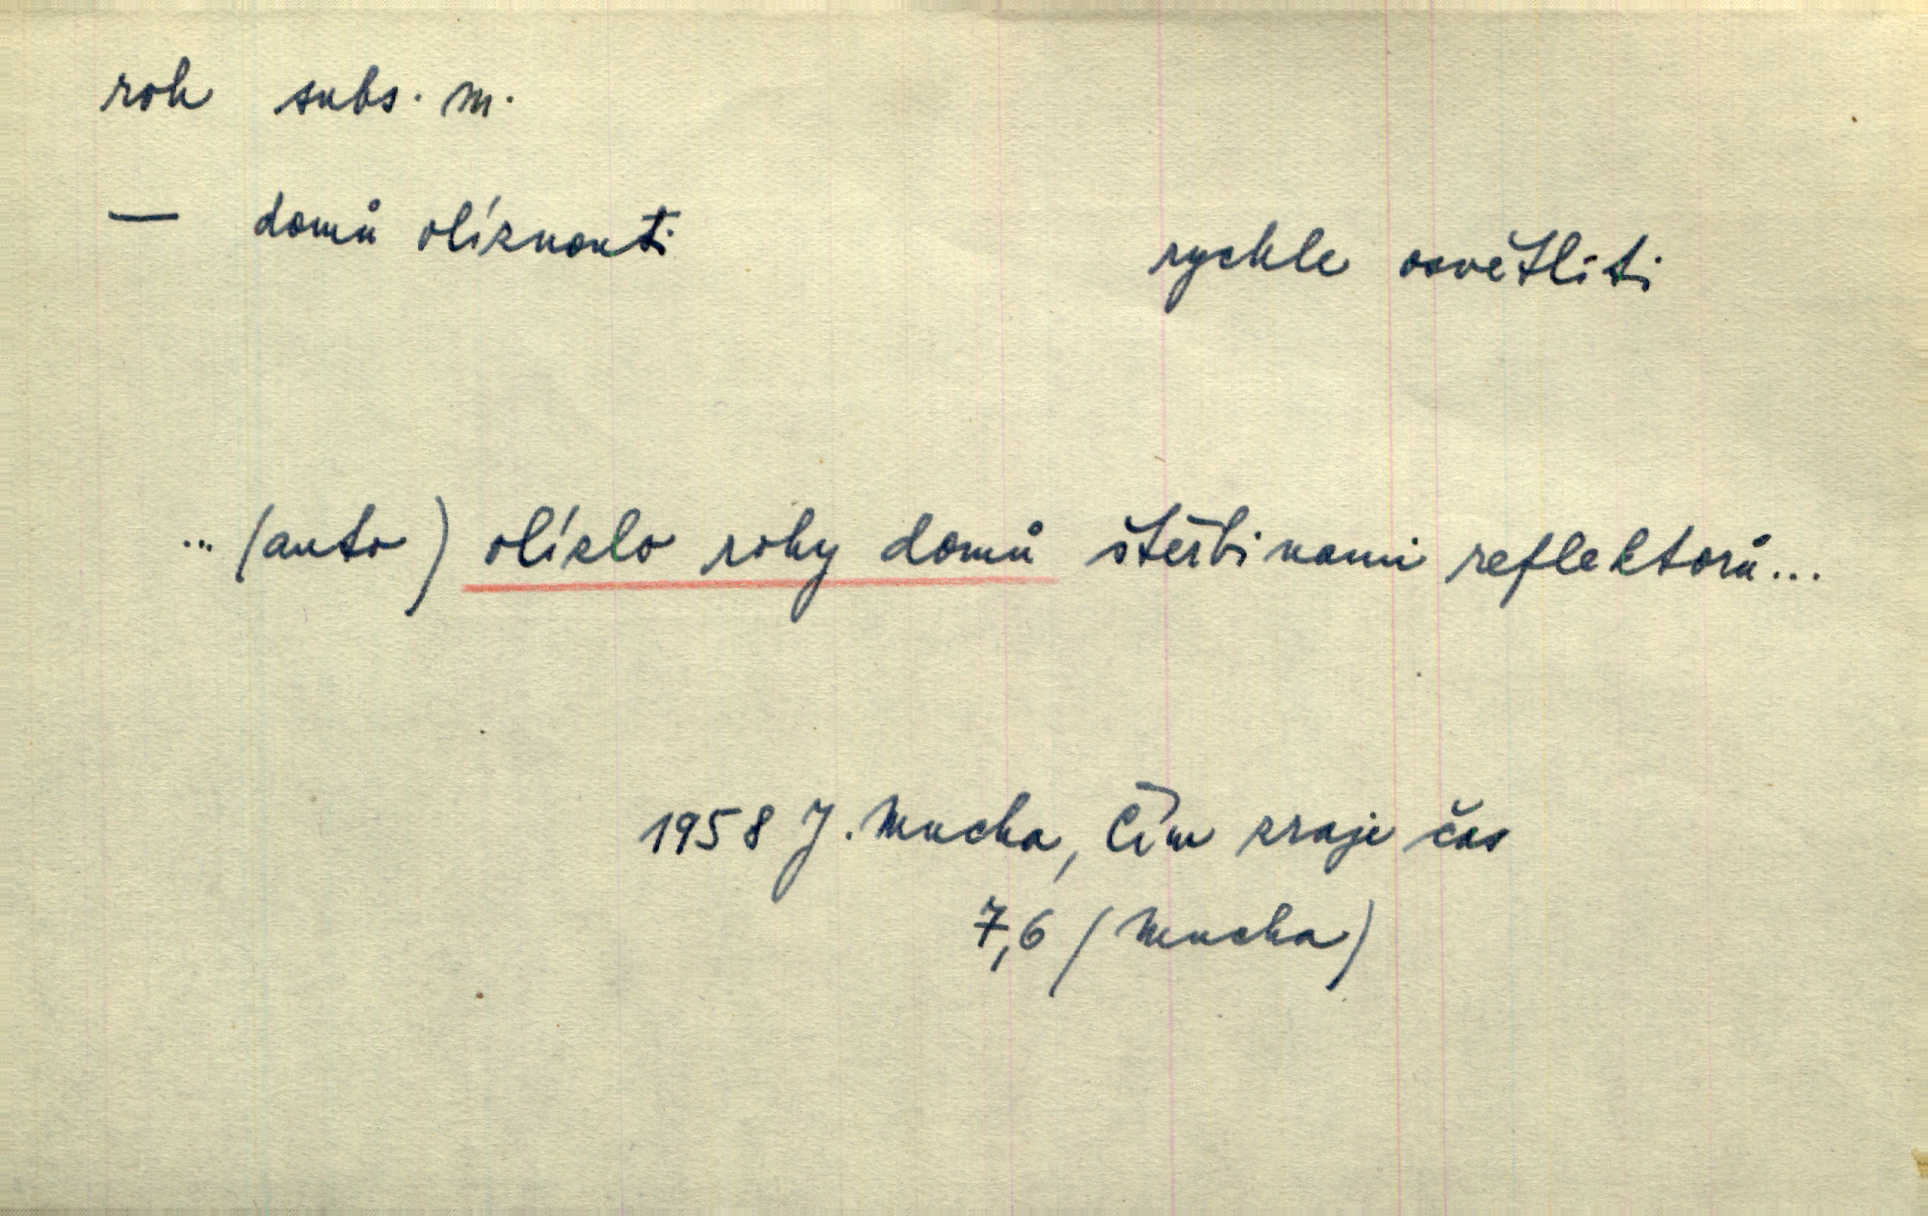 roh subs. m.
— domů olíznouti rychle osvětliti
... (auto) olízlo rohy domů štěrbinami reflektorů...
1958 J. Mucha, Čím zraje čas
7,6 (Mucha)